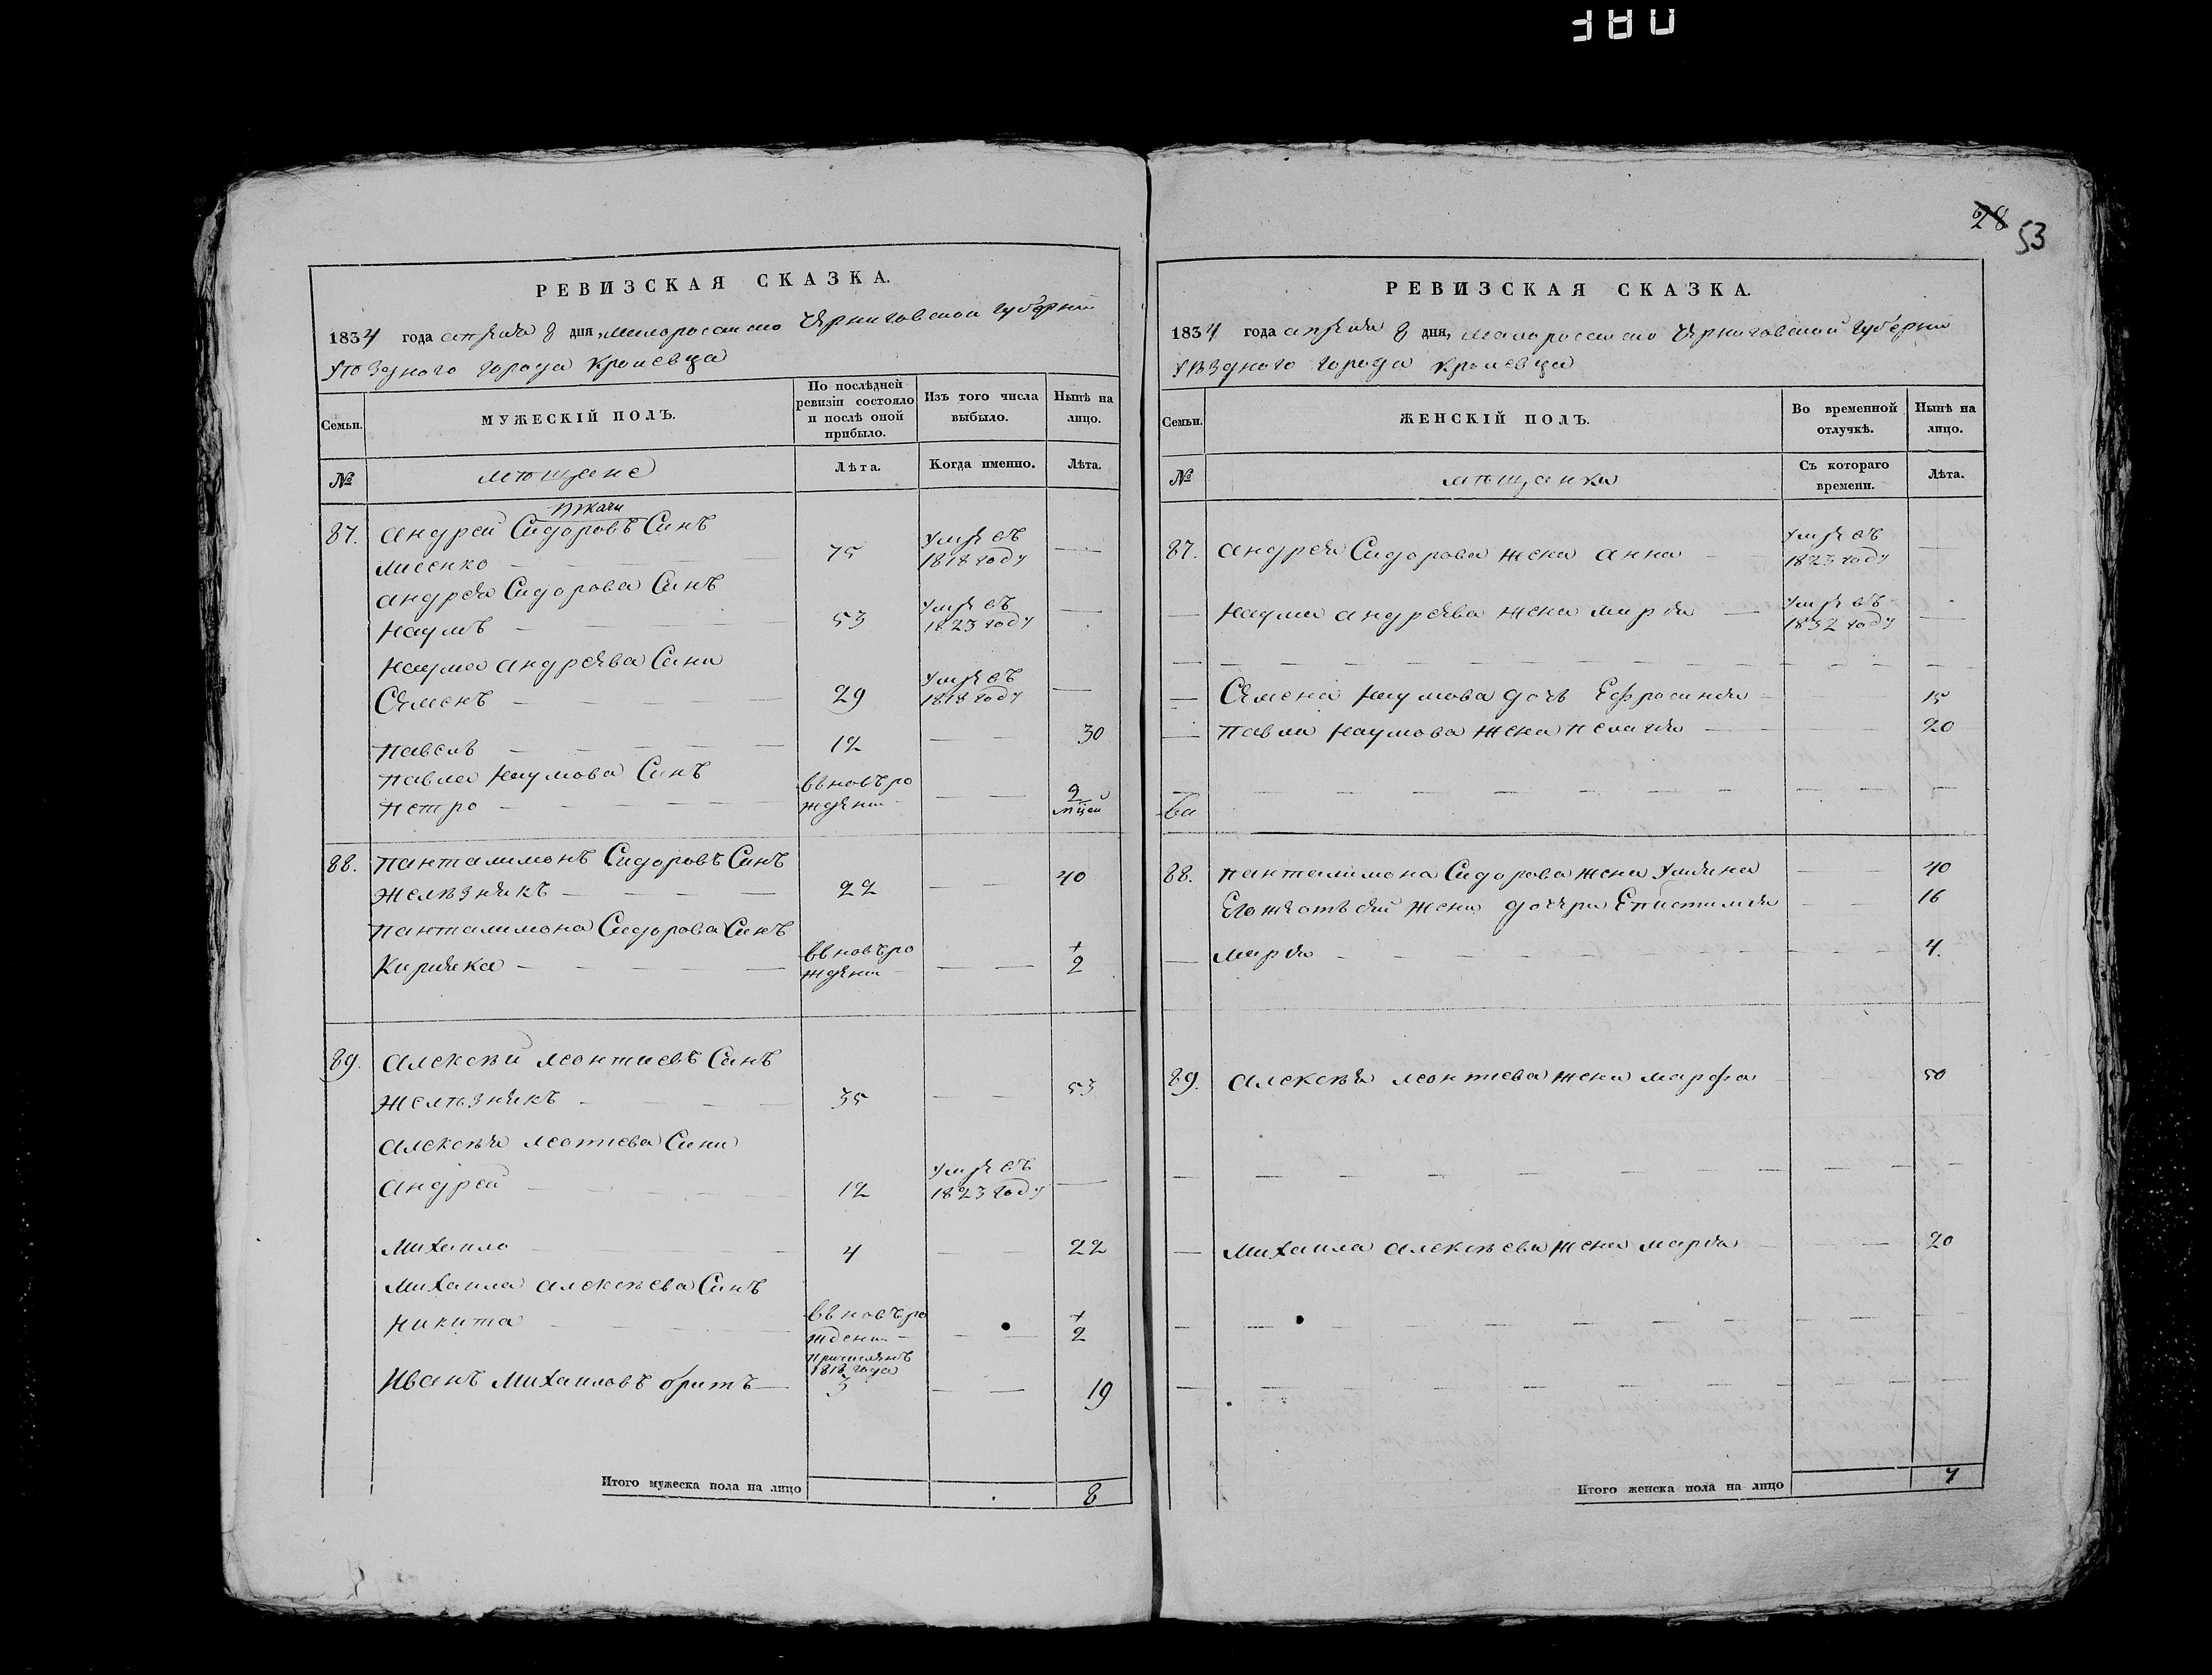 28 53
РЕВИЗСКАЯ СКАЗКА.
1834 года апреля 8 дня, малороссийско Черниговской губернии
уѣздного города Кролевца
Семьи.
МУЖЕСКІЙ ПОЛЪ.
По послѣдней
ревизіи состояло
и послѣ оной
прибыло.
Изъ того числа
выбыло.
Нынѣ на
лицо.
№
мѣщане
Лѣта.
Когда именно.
Лѣта.
87. Андрей Сидоровъ Синъ
Лисенко 75 умре въ 1818 году
Андрея Сидорова Синъ
Наумъ 53 умре въ 1823 году
Наума Андреева Сини
Семенъ 29 умре въ 1818 году
Павелъ 12 30
Павла Наумова Синъ
Петро вновь рождени 9 мцей
88. Панталимонъ Сидоровъ Синъ
Желѣзнякъ 22 40
Панталимона Сидорова Синъ
Кирияка вновь рождени + 2
89. Алексѣй Леонтиевъ Синъ
Желѣзнякъ 35 53
Алексѣя Леотиева Сини
Андрей 12 умре въ 1823 году
Михаило 4 22
Михаила Алексѣева Синъ
Никита вновь рождени + 2
Причисленъ 1818 года
Иванъ Михаиловъ братъ 3 19
Итого мужеска пола на лицо 8
РЕВИЗСКАЯ СКАЗКА.
1834 года апреля 8 дня, малороссийско Черниговской губерни
уѣздного города Кролевца
Семьи.
ЖЕНСКІЙ ПОЛЪ.
Во временной
отлучкѣ.
Нынѣ на
лицо.
№
мѣщанки
Съ котораго
времени.
Лѣта.
87. Андрея Сидорова жена Анна умре въ 1823 году
Наума Андреева жена Мария умре въ 1832 году
Семена Наумова дочь Ефросиния 15
Павла Наумова жена Пелагия 20
88. Панталимона Сидорова жена Улияна 40
Его же отъ сей жени дочери Епистимия 16
Мария 4.
89. Алексѣя Леонтиева жена Марфа 50
Михаила Алексѣева жена Мария 20
Итого женска пола на лицо 7